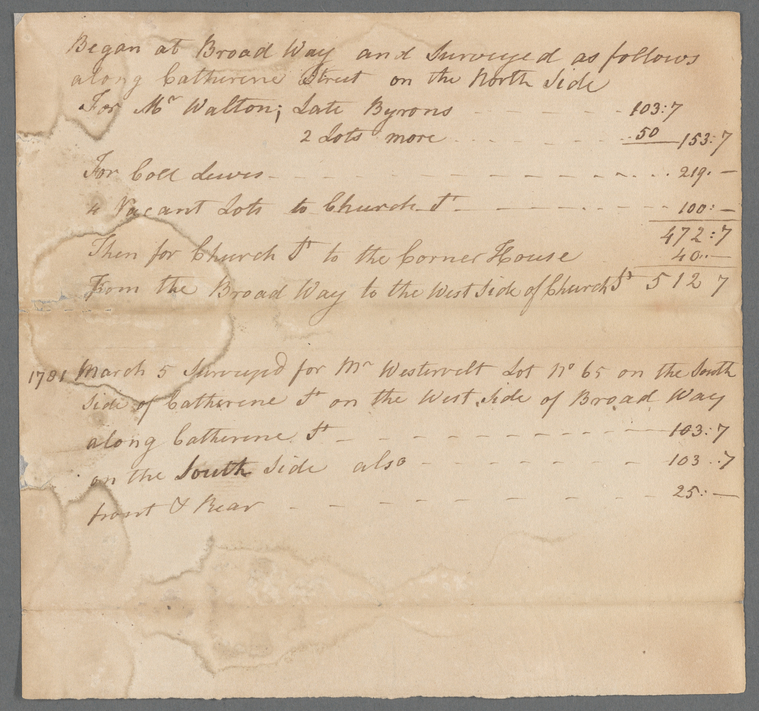 Began at Broad Way and Surveyed as follows
along Catherine Street on the North Side
For Mr Walton; Late Byrons - - - - 103:7
2 Lots more - - - - 50 153:7
For Coll Lewis - - - - - - - 219. —
4 Vacant Lots to Church St - - - - - 100: —
472:7
Then for Church St to the Corner House 40: —
From the Broad Way to the West Side of Church St 512 7
1781 March 5 Surveyed for Mr Westervelt Lot No 65 on the South
Side of Catherine St on the West Side of Broad Way
along Catherine St - - - - - - - 103:7
on the South Side also - - - - - - 103:7
front & Rear - - - - - - - 25: —